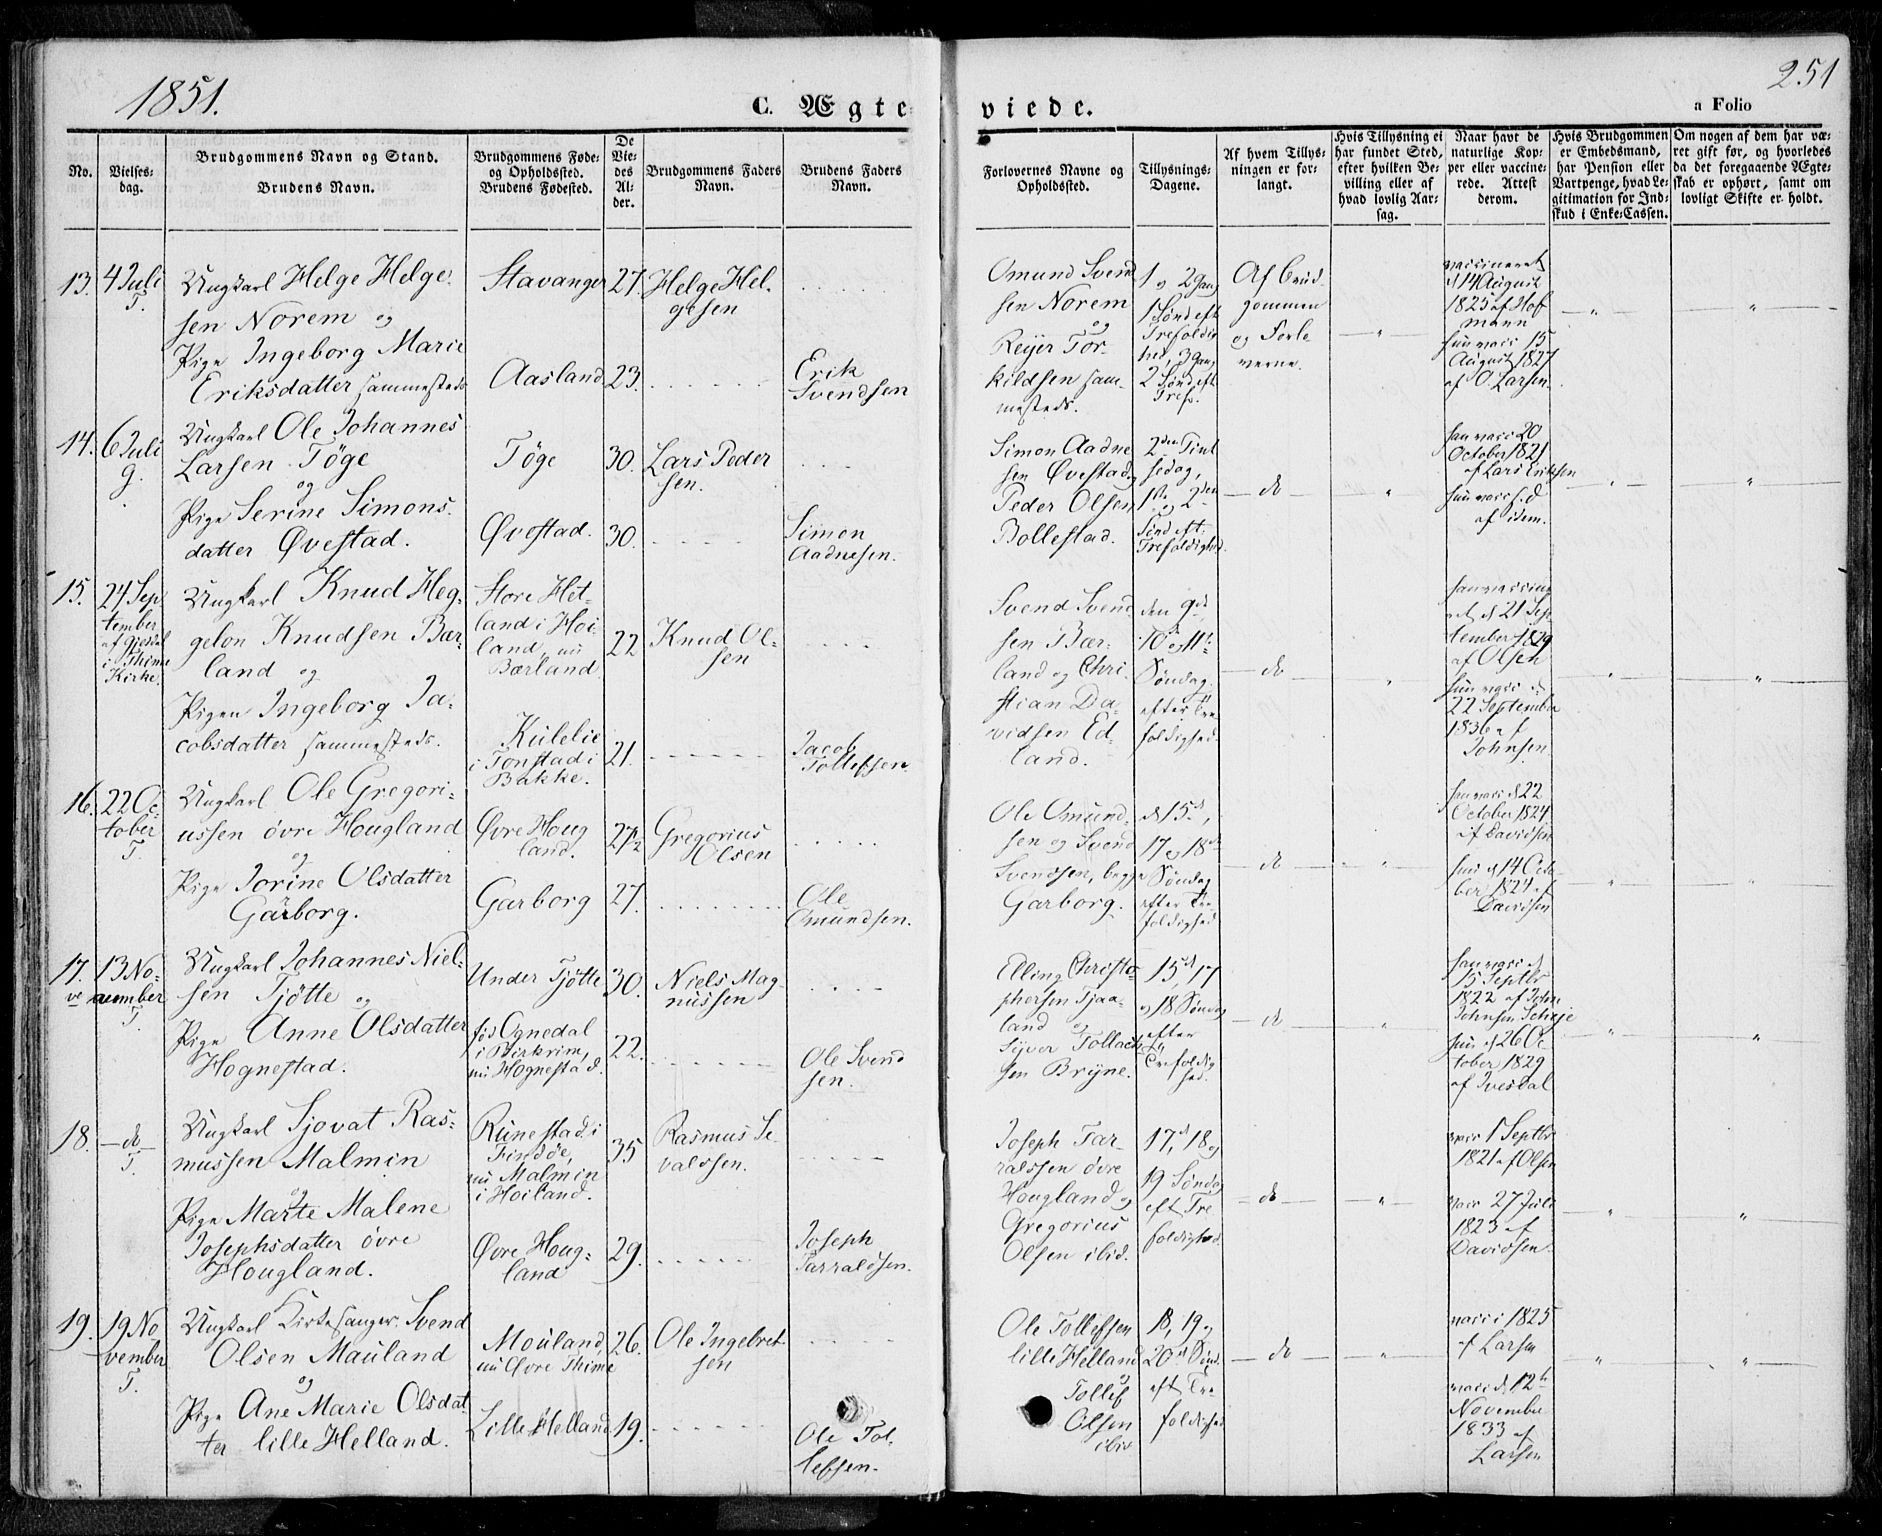 1851.
251
C. Ægte
viede.
a Folio
No.
Vielses=
dag.
Brudgommens Navn og Stand.
Brudens Navn.
Brudgommens Føde=
og Opholdssted.
Brudens Fødested.
De
Vie=
des
Al=
der.
Brudgommens Faders
Navn.
Brudens Faders
Navn.
Forlovernes Navne og
Opholdssted.
Tillysnings=
Dagene.
Af hvem Tillys=
ningen er for=
langt.
Hvis Tillysning ei
har fundet Sted,
efter hvilken Be=
villing eller af
hvad lovlig Aar=
sag.
Naar havt de
naturlige Kop=
per eller vaccine=
rede. Attest
derom.
Hvis Brudgommen
er Embedsmand,
har Pension eller
Vartpenge, hvad Le=
gitimation for Ind=
skud i Enke=Cassen.
Om nogen af dem har væ=
ret gift før, og hvorledes
da det foregaaende Ægte=
skab er ophørt, samt om
lovligt Skifte er holdt.
13.
4 Juli
T.
Ungkarl Helge Helge=
sen Norem og
Pige Ingeborg Marie
Eriksdatter sammesteds
Stavanger
Aasland
27.
23.
Helge Hel=
gesen
Erik
Svendsen
Omund Svend
sen Norem
og
Reijer Tor=
kildsen sam=
mesteds.
1 og 2 Gang
1 Sønd eft
Trefoldig
hed, 3 Gang
2 Sønd eft
Tref.
Af Brud=
gommen
og Forlo
verne.
vaccineret
d 14 August
1825 af Hof
mann
hun vacc 15
August 1827
af O. Larsen
14.
6 Juli
g.
Ungkarl Ole Johannes
Larsen Töge
og
Pige Serine Simons=
datter Øvestad.
Töge
Øvestad.
30.
30.
Lars Peder
sen.
Simon
Aadnesen.
Simon Aadne
sen Øvestad,
Peder Olsen
Bollestad.
2den Pint
sedag,
1ste og 2den
Sønd eft.
Trefoldighed.
do
han vacc 20
October 1821
af Lars Eriksen
hun vacc d
af idem.
15.
24 Sep
tember
af Gjesdal
i Thime
Kirke.
Ungkarl Knud Heg=
gelon Knudsen Bær=
land og
Pigen Ingeborg Ja=
cobsdatter sammesteds.
Store Het=
land i Hoi=
land, nu
Bærland
i Tonstad i
Bakke.
22
21.
Knud Ol=
sen
Jacob
Tollefsen.
Svend Svend
sen Bær=
land og Chri=
stian Da=
vidsen Ed=
land.
den 9de
10 og 11te
Søndag
efter Tre
foldighed.
do
han vaccine
ret d 21 Sep
tember 1829
af Olsen
hun vacc d
22 September
1836 af
Johnsen
16.
22 Oc=
tober
T.
Ungkarl Ole Gregori=
ussen övre Hougland
og
Pige Jorine Olsdatter
Garborg.
Øvre Houg
land.
Garborg
27½
27.
Gregorius
Olsen
Ole
Omundsen.
Ole Omund=
sen og Svend
Svendsen, begge
Garborg.
d 15d,
17 og 18de
Søndag
efter Tre
foldighed
do
han vacc d 22
October 1824
af Davidsen
hun d 14 Octo=
ber 1824 af
Davidsen
17.
13 No=
vember
T.
Ungkarl Johannes Niel=
sen Tjötte og
Pige Anne Olsdatter
Hognestad.
Under Tjötte
fød Ognedal
i Birkrim,
nu Hognestad.
30.
22.
Niels Mag=
nussen
Ole Svend
sen.
Elling Christo=
phersen Tjaa=
land og
Sijver Tollack
sen Brijne.
15d, 17
og 18 Søndag
efter
Trefoldig
hed.
do
han vacc d
15 Septbr
1822 af John
Johnsen
hun d 26 Oc=
tober 1829
af Ivesdal
18.
do
T.
Ungkarl Sjovat Ras=
mussen Malmin
og
Pige Marte Malene
Josephsdatter övre
Hougland.
Runestad i
Findöe,
nu Malmin
i Hoiland.
Øvre Houg=
land
35
29.
Rasmus Se=
valdsen.
Joseph
Tarraldsen.
Joseph Tar=
raldsen övre
Hougland og
Gregorius
Olsen ibid.
17d, 18 og
19 Søndag
eft Tre
foldighed
do
vacc 1 Septbr
1821 af Olsen
vacc 27 Juli
1823 af
Davidsen.
19.
19 No
vember
T.
Ungkarl Kirkesanger Svend
Olsen Mauland
og
Pige Ane Marie Olsdat=
ter lille Helland.
Mouland,
nu Øvre Thime
Lille Helland
26.
19.
Ole Ingebret
sen
Ole Tol=
lefsen.
Ole Tollefsen
lille Helland
og
Tollef
Olsen
ibid
18, 19 og
20d Sønd.
eft Tre
foldighed
do
vacc i 1825
af Larsen
vacc d 12te
November
1833 af
Larsen